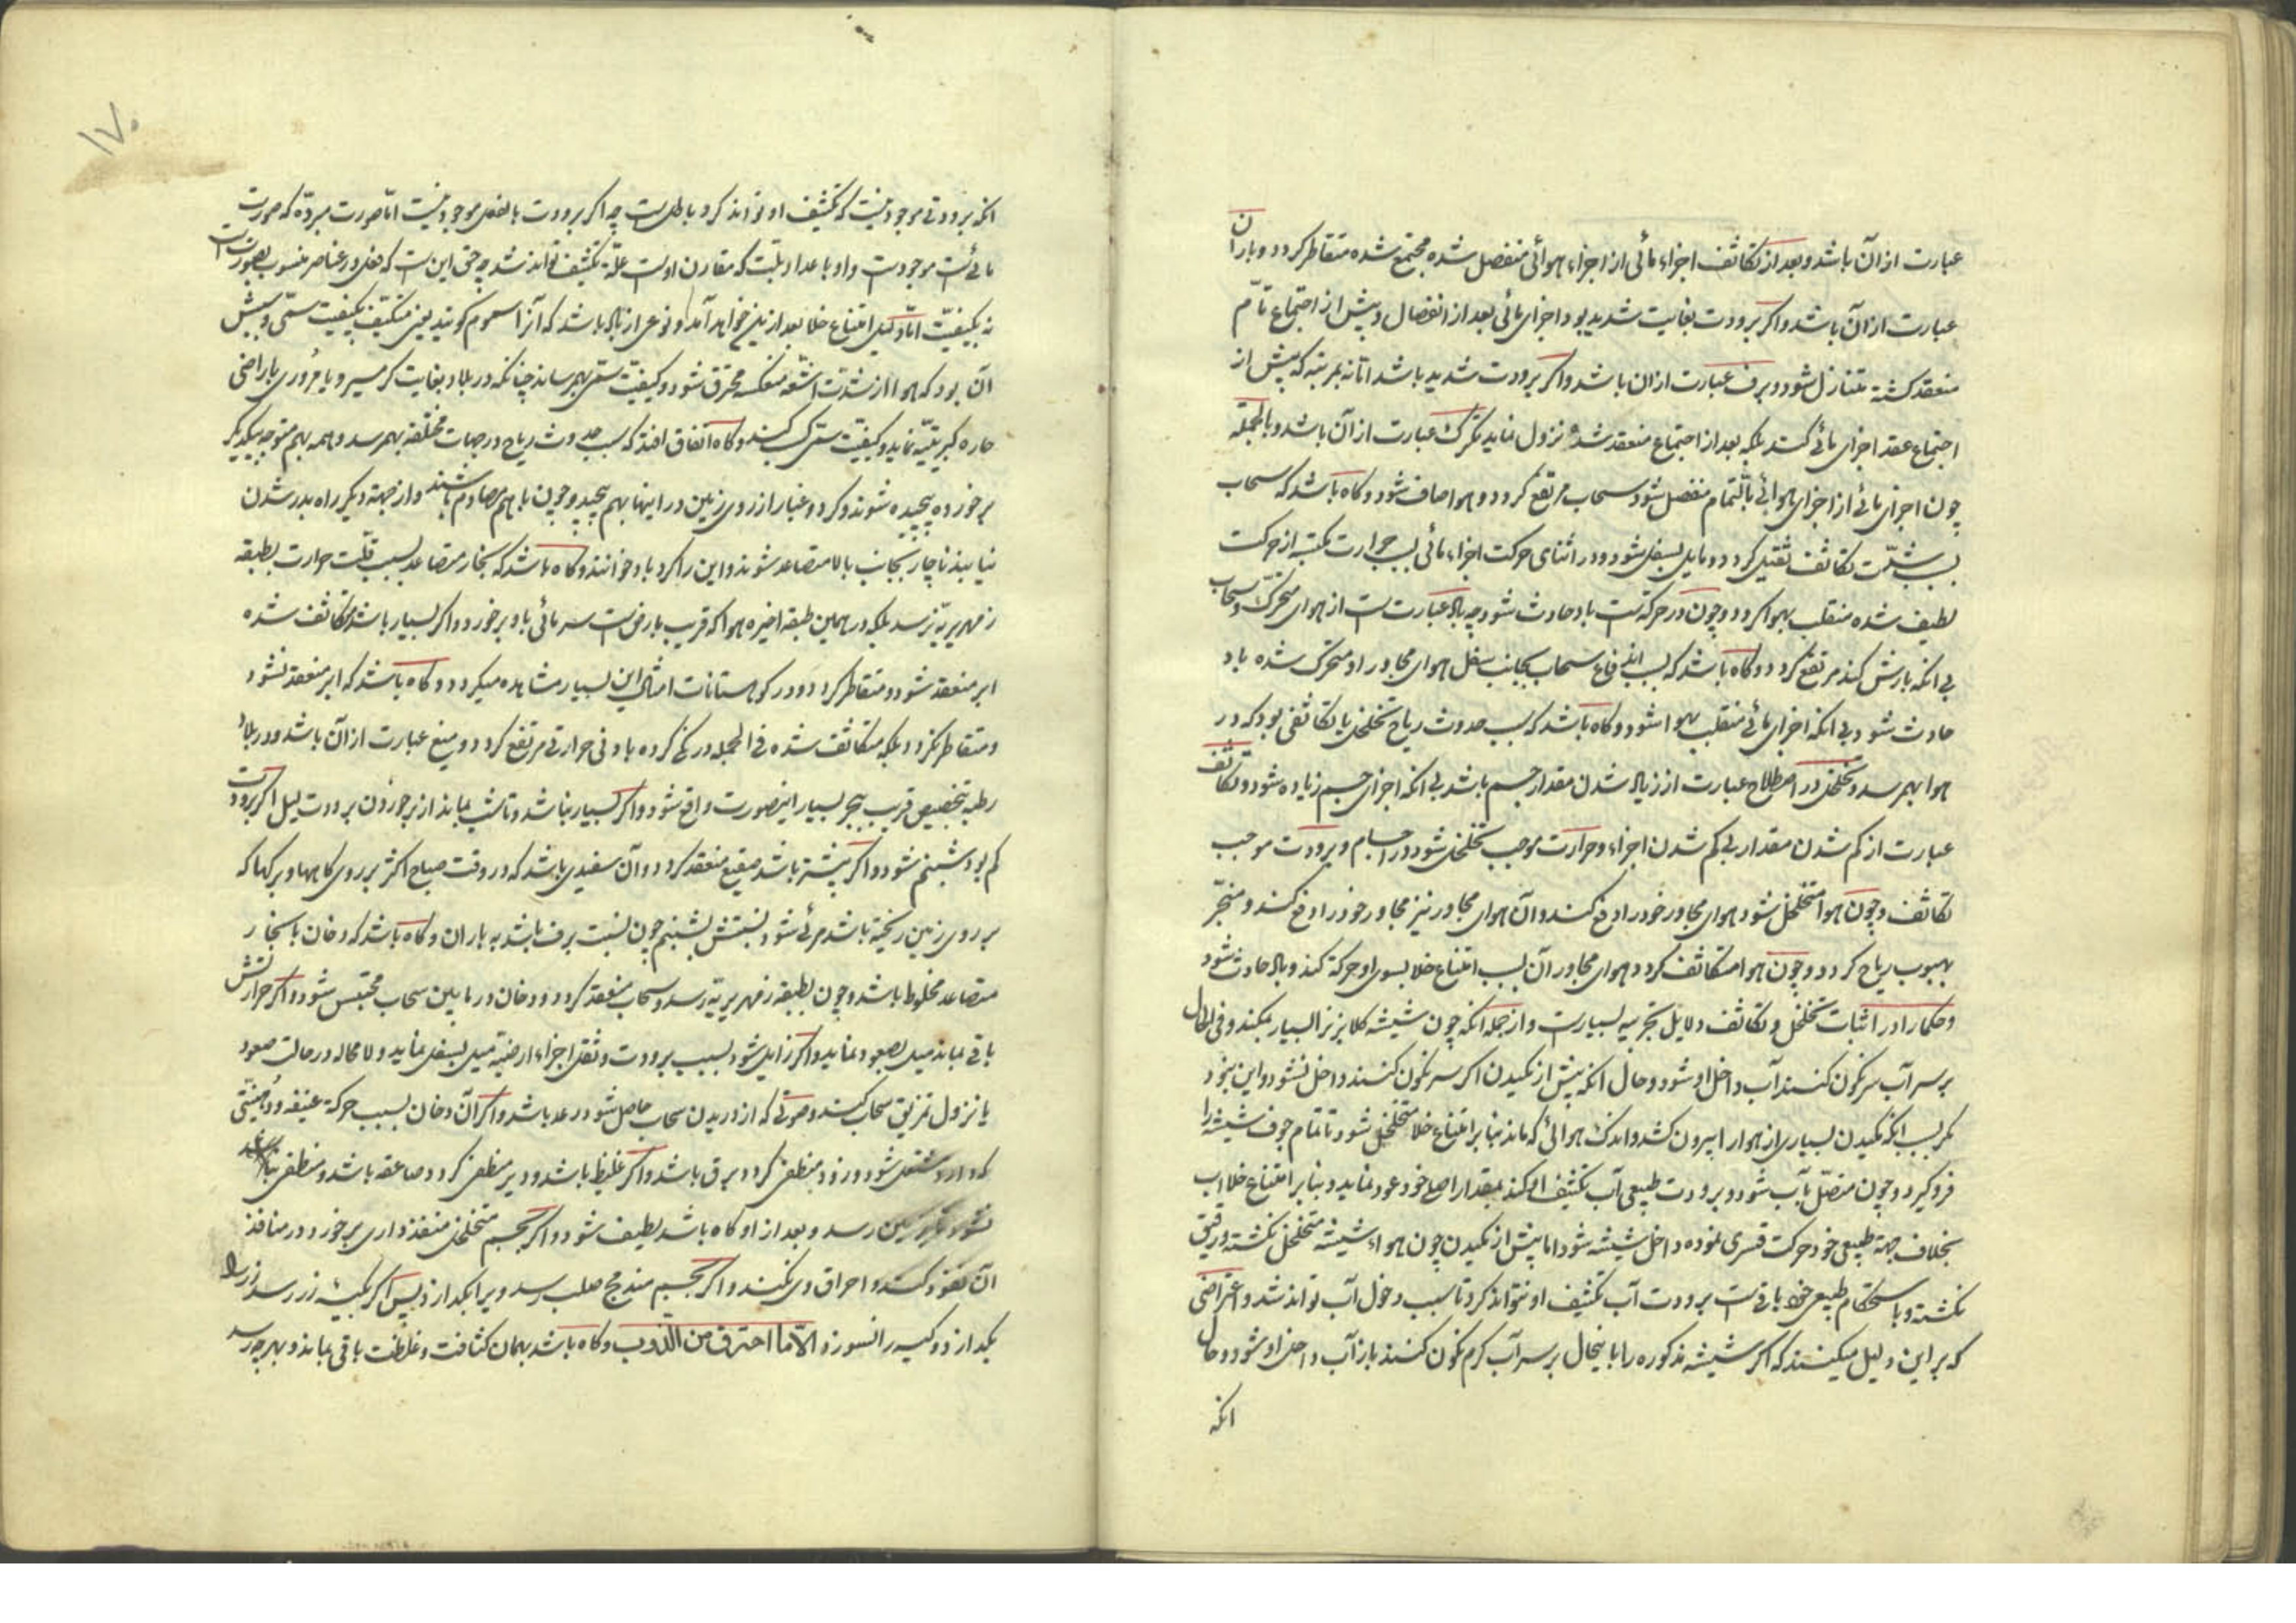 عبارت از آن باشد و بعد از تکاثف اجزاء مائی از اجزاء هوائی منفصل شده مجتمع شده متقاطر کردد و باران
عبارت از آن باشد و اکر برودت بغایت شدید بود اجزای مائی بعد از انفصال و پیش از اجتماع تام
منعقد کشته متنازل شود و برف عبارت از ان باشد و اکر برودت شدید باشد اما نه بمرتبه که پیش از
اجتماع عقد اجزای مائی کند بلکه بعد از اجتماع منعقد شده نزول نماید تکرک عبارت از آن باشد و بالجمله
چون اجزای مائی از اجزای هوائی بالتمام منفصل شود سحاب مرتفع کردد و هوا صاف شود و کاه باشد که سحاب
بسبب شدّت تکاثف ثقیل کردد و مایل بسفل شود و در اثنای حرکت اجزاء مائی بسبب حرارت مکتسبه از حرکت
لطیف شده منقلب بهوا کردد و چون در حرکتست باد حادث شود چه باد عبارتست از هوای متحرک و سحاب
بی انکه بارش کند مرتفع کردد و کاه باشد که بسبب اندفاع سحاب بجانب سفل هوای مجاور او متحرک شده باد
حادث شود بی انکه اجزای مائی منقلب بهوا شود و کاه باشد که سبب حدوث ریاح تخلخل یا تکاثفی بود که در
هوا بهم رسد و تخلخل در اصطلاح عبارت از زیاد شدن مقدار جسم باشد بی انکه اجزای جسم زیاده شود و تکاثف
عبارت از کم شدن مقدار بی کم شدن اجزاء و حرارت موجب تخلخل شود در اجسام و برودت موجب
تکاثف و چون هوا متخلخل شود هوای مجاور خود را دفع کند و آن هوای مجاور نیز مجاور خود را دفع کند و منجرّ
بهبوب ریاح کردد و چون هوا متکاثف کردد هوای مجاور آن بسبب امتناع خلا بسوی او حرکة کند و باد حادث شود
و حکما را در اثبات تخلخل و تکاثف دلایل تجربیه بسیارست و از جمله انکه چون شیشه کلابریز را بسیار بمکند و فی الحال
بر سر آب سرنکون کنند آب داخل او شود و حال انکه پیش از مکیدن اکر سرنکون کنند داخل نشود و این نبود
مکر بسبب انکه مکیدن بسیاری از هوا را بیرون کشد و اندک هوائی که ماند بنابر امتناع خلا متخلخل شود تا تمام جوف شیشه را
فرو کیرد و چون متصل بآب شود و برودت طبیعی آب تکثیف او کند بمقدار اصلی خود عود نماید و بنابر امتناع خلا اب
بخلاف جهة طبیعی خود حرکت قسری نموده داخل شیشه شود اما پیش از مکیدن چون هواء شیشه متخلخل نکشته و رقیق
نکشته و باستحکام طبیعی خود باقیست برودت آب تکثیف او نتواند کرد تا سبب دخول آب تواند شد و اعتراضی
که بر این دلیل میکنند که اکر شیشه مذکوره را باینحال بر سر آب کرم نکون کنند باز آب داخل او شود و حال
انکه
۱۷۰
انکه برودتی موجود نیست که تکثیف او تواند کرد باطلست چه اکر برودت بالفعل موجود نیست امّا صورت مبردّه که صورت
مائیست موجودست و او باعداد که مقارن اوست علّة تکثیف تواند شد چه حق این ست که فعل در عناصر منسوب بصورتست
نه بکیفیّت امّا دلیل امتناع خلا بعد ازین خواهد آمد و نوعی از باد باشد که آنرا سموم کویند یعنی متکیّف بکیفیت سمّی و سببش
آن بود که هوا از شدّت اشعّه منعکسه محترق شود و کیفیّت سمّی بهم رساند چنانکه در بلاد بغایت کرمسیر و یا مروری باراضی
حاره کبریتیّه نماید و کیفیّت سمّی کسب کند و کاه اتفاق افتد که سبب حدوث ریاح در جهات مختلفه بهم رسد و همه بهم متوجه بیکدیکر
برخورده پیچیده شوند و کرد و غبار از روی زمین در اینها بهم پیچد و چون با هم مصادم باشند و از جهة دیکر راه بدر شدن
نیابند ناچار بجانب بالا متصاعد شوند و این را کردباد خوانند و کاه باشد که بخار متصاعد بسبب قلّت حرارت بطبقه
زمهریریّه نرسد بلکه در همین طبقه اخیره هوا که قریب بارضست سرمائی باو برخورد و اکر بسیار باشد متکاثف شده
ابر منعقد شود و متقاطر کردد و در کوهستانات امثال این بسیار مشاهده میکردد و کاه باشد که ابر منعقد نشود
و متقاطر نکردد بلکه متکاثف شده فی الجمله درنکی کرده بادنی حرارتی مرتفع کردد و میغ عبارت از آن باشد و در بلاد
رطبه بتخصیص قریب ببحر بسیار اینصورت واقع شود و اکر بسیار نباشد و تا شب بماند از برخوردن برودت لیل اکر برودت
کم بود شبنم شود و اکر بیشتر باشد صقیع منعقد کردد و آن سفیدی باشد که در وقت صباح اکثر بر روی کاهها و برکها که
بر روی زمین ریخته باشد مرئی شود و نسبتش بشبنم چون نسبت برف باشد به باران و کاه باشد که دخان با بخار
متصاعد مخلوط باشد و چون بطبقه زمهریریّه رسد و سحاب منعقد کردد و دخان در مابین سحاب محتبس شود و اکر حرارتش
باقی بماند میل بصعود نماید و اکر زایل شود بسبب برودت و ثقل اجزاء ارضیّه میل بسفل نماید و لامحاله در حالت صعود
یا نزول تمزیق سحاب کند و صوتی که از دریدن سحاب حاصل شود رعد باشد و اکر آن دخان بسبب حرکة عنیفه و دهنیّتی
که دارد مشتعل شود و زود منطفی کردد برق باشد و اکر غلیظ باشد و دیر منطفی کردد صاعقه باشد و منطفی
نشود تا بزمین رسد و بعد از او کاه باشد لطیف شود و اکر بجسم متخلخل منفذداری برخورد در منافذ
آن نفوذ کند و احراق وی نکند و اکر بجسم مندمج صلب رسد ویرا بکدازد پس اکر بکیسه زر رسد زر را
بکدازد و کیسه را نسوزد الّا ما احترق من الذوب و کاه باشد بهمان کثافت و غلظت باقی بماند و بهرچه رسد